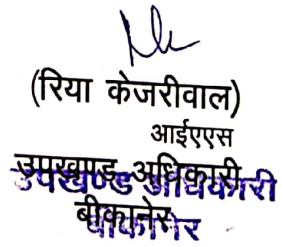 (रिया केजरीवाल)
आईएएस
उपखण्ड अधिकारी
उपखण्ड अधिकारी
बीकानेर
बीकानेर